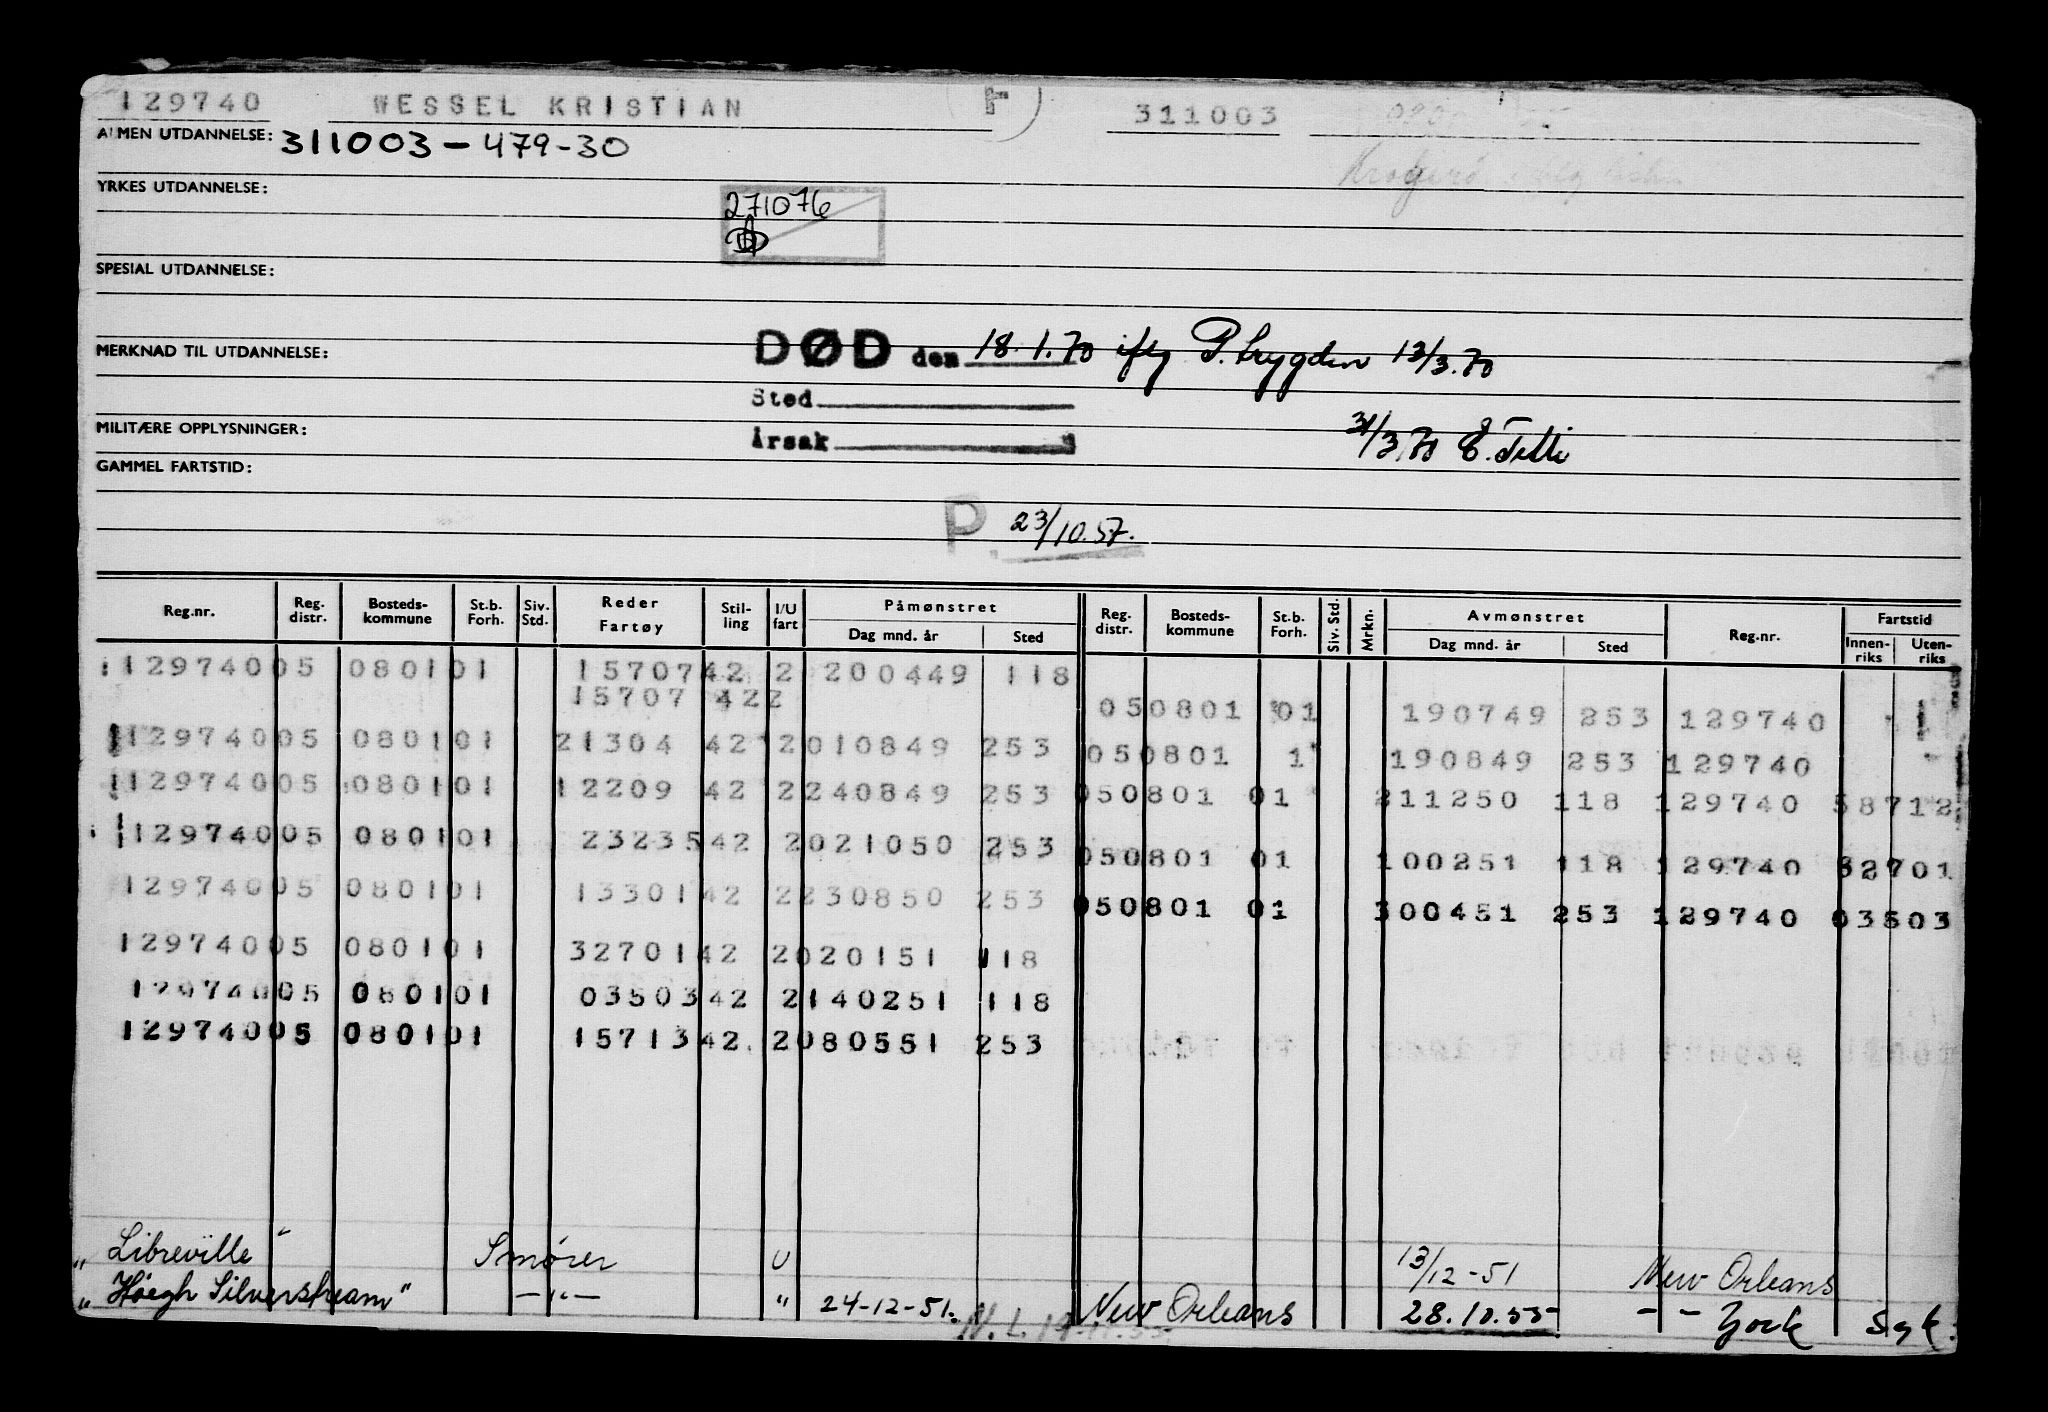 129740 WESSEL KRISTIAN F 311003
ALMEN UTDANNELSE: 311003-479-30
YRKES UTDANNELSE:
271076
SPESIAL UTDANNELSE:
MERKNAD TIL UTDANNELSE: DØD den 18.1.70 iflg P.trygden 13/3.70
Sted
MILITÆRE OPPLYSNINGER: Årsak 31/3.70
GAMMEL FARTSTID:
P. 23/10.57.
Reg.nr. Reg. distr. Bosteds-kommune St.b. Forh. Siv. Std. Reder Fartøy Stil-ling I/U fart Påmønstret Dag mnd. år Sted Reg. distr. Bosteds-kommune St.b. Forh. Siv. Std. Mrkn. Avmønstret Dag mnd. år Sted Reg.nr. Fartstid Innen-riks Uten-riks
12974005 080101 1570742 2 200449 118
15707 422 050801 01 190749 253 129740
12974005 080101 21304 42 2010849 253 050801 1 190849 253 129740
12974005 080101 12209 42 2240849 253 050801 01 211250 118 129740 58712
12974005 080101 2323542 2021050 253 050801 01 100251 118 129740 32701
12974005 080101 1330142 2230850 253 050801 01 300451 253 129740 03503
12974005 080101 3270142 2020151 118
12974005 080101 0350342 2140251 118
12974005 080101 1571342. 2080551 253
"Libreville" Smører U 13/12-51 New Orleans
"Høegh Silverstream" —"— " 24-12-51. New Orleans 28.10.55 - - York Syk.